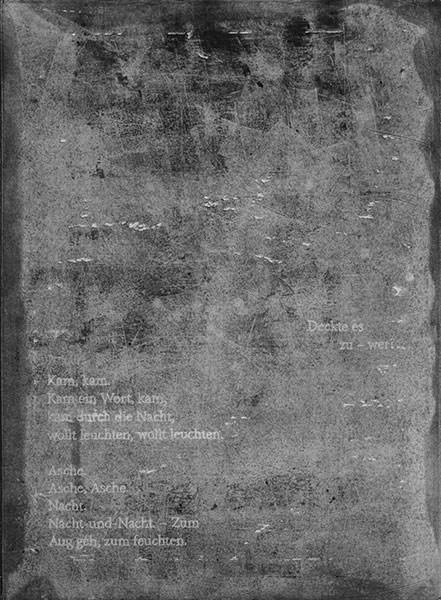 Deckte es
zu – wer?
Kam, kam.
Kam ein Wort, kam,
kam durch die Nacht,
wollt leuchten, wollt leuchten.
Asche.
Asche, Asche.
Nacht.
Nacht-und-Nacht. – Zum
Aug geh, zum feuchten.